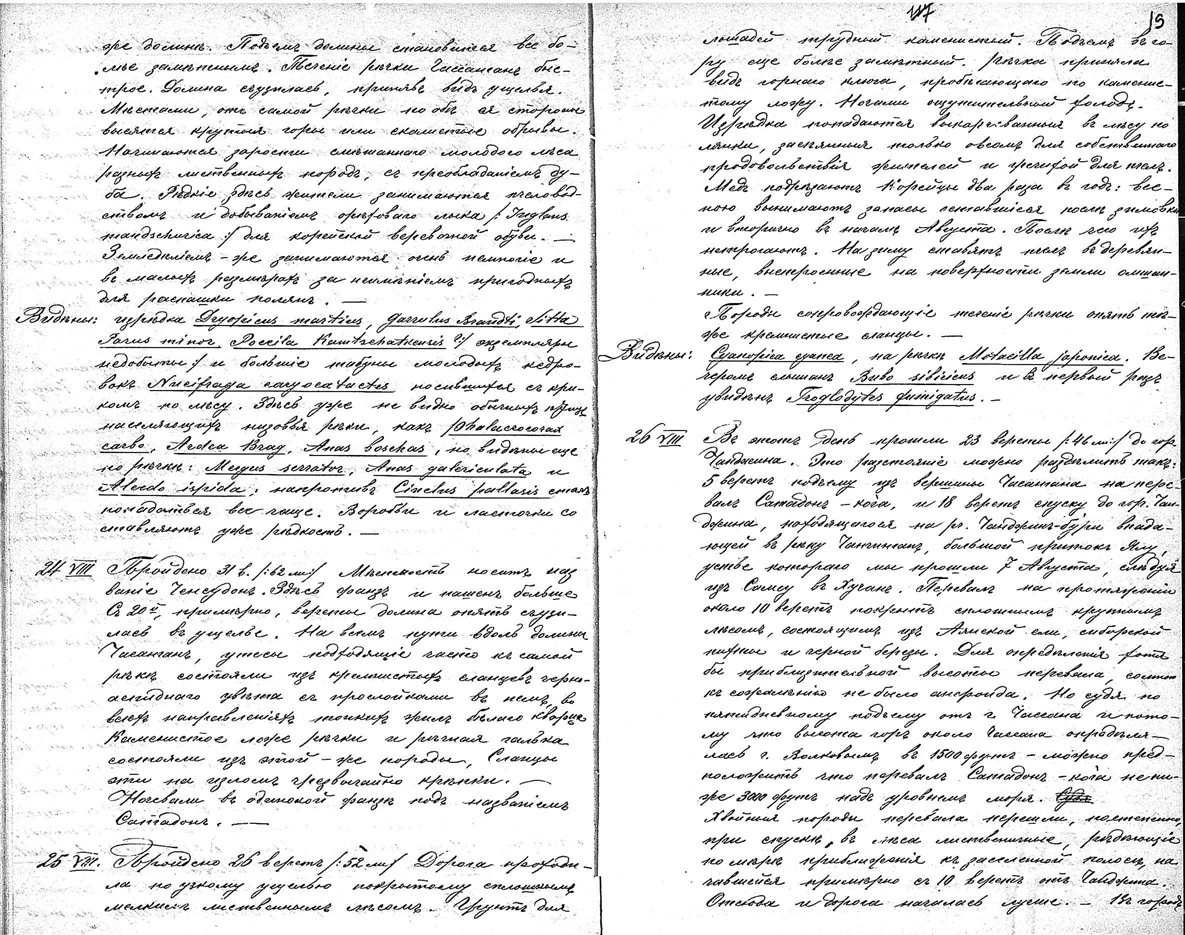 же долинъ. Подъемъ долины становится все бо-
лѣе замѣтнымъ. Теченіе рѣчки Чассансанъ быс-
трое. Долина съузилась, принявъ видъ ущелья.
Мѣстами, отъ самой рѣчки по обѣ ея стороны
высятся крутыя горы или скалистые обрывы.
Начинаются заросли смѣшаннаго молодого лѣса
разныхъ лиственныхъ породъ, съ преобладаніемъ ду-
ба. Рѣдкіе здѣсь жители занимаются пчеловод-
ствомъ и добываніемъ орѣховаго лыка /: Juglans
mandschurica :/ для корейской веревочной обуви. —
Земледѣліемъ-же занимаются очень немногіе и
въ малыхъ размѣрахъ за неимѣніемъ пригодныхъ
для распашки полянъ. —
Видѣны: изрѣдка Dryopicus martius, Garrulus Brandti Sitta
Parus minor Poecila Kamtschatkensis ?/ экземпляры
недобыты :/ и большіе табуны молодыхъ кедро-
вокъ Nucifraga caryocatactes носившихся съ кри-
комъ по лѣсу. Здѣсь уже не видно обычныхъ птицъ
населяющихъ низовья рѣчки, какъ Phalacrocorax
carbo, Ardea Brag, Anas boschas, но видѣны еще
по рѣчкѣ: Mergus serrator, Anas galericulata и
Alcedo ispida; напротивъ Cinclus pallasii сталъ
попадаться все чаще. Воробьи и ласточки со
ставляютъ уже рѣдкость. —
24 VIII Пройдено 31 в. /: 62 ли :/ Мѣстность носитъ наз
ваніе Ченсудонъ. Здѣсь фанзъ и пашенъ больше
Съ 20й, примѣрно, версты долина опять съузи-
лась въ ущелье. На всемъ пути вдоль долины
Часанганъ, утесы подходящіе часто къ самой
рѣкѣ состояли изъ кремнистыхъ сланцевъ черно-
аспиднаго цвѣта съ прослойками въ немъ, во
всѣхъ направленіяхъ тонкихъ жилъ бѣлаго кварца
Каменистое ложе рѣчки и рѣчная галька
состояли изъ этой-же породы, Сланцы
эти на изломъ чрезвычайно крѣпки. —
Ночевали въ одинокой фанзѣ подъ названіемъ
Сатадонъ. —
25 VIII. Пройдено 26 верстъ /: 52 ли :/ Дорога проходи-
ла по узкому ущелью покрытому сплошнымъ
мелкимъ лиственнымъ лѣсомъ. Грунтъ для
117 19
лошадей трудный каменистый. Подъемъ въ го-
ру еще болѣе замѣтный. Рѣчка приняла
видъ горнаго ключа, пробѣгающаго по камени-
стому логу. Ночами ощутительный холодъ.
Изрѣдка попадаются выкарчеванныя въ лѣсу по
лянки, засѣянныя только овсомъ для собственнаго
продовольствія жителей и гречихой для пчелъ.
Медъ подрѣзаютъ Корейцы два раза въ годъ: вес-
ною вынимаютъ запасы оставшіеся послѣ зимовки
и вторично въ началѣ Августа. Послѣ чего ихъ
нетрогаютъ. На зиму ставятъ пчелъ въ деревян-
ные, выстроенные на поверхности земли омшан-
ники. —
Породы сопровождающіе теченіе рѣчки опять тѣ-
же кремнистые сланцы.
Видѣны: Cyanopica cyanea, на рѣчкѣ Motacilla japonica. Ве-
черомъ слышанъ Bubo sibiricus и въ первый разъ
увидѣнъ Troglodytes fumigatus. —
26 VIII Въ этотъ день прошли 23 версты /: 46 ли :/ до гор.
Чандясина. Это разстояніе можно раздѣлить такъ:
5 верстъ подъему изъ вершины Часангана на пере-
валъ Сатадонъ-кога, и 18 верстъ спуску до гор. Чан-
дорина, находящагося на рч. Чандоринъ-бури впада-
ющей въ рѣку Чангинганъ, большой притокъ Ялу,
устье котораго мы прошли 7 Августа, слѣдуя
изъ Самсу въ Хучанъ. Перевалъ на протяженіи
около 10 верстъ покрытъ сплошнымъ крупнымъ
лѣсомъ, состоящимъ изъ Аянской ели, сибирской
пихты и черной березы. Для опредѣленія хотя
бы приблизительной высоты перевала, со мною
къ сожалѣнію не было анероида. Но судя по
пятидневному подъему отъ г. Чассана и пото-
му что высота горъ около Чассана опредѣля-
лась г. Волковымъ въ 1500 футъ — можно пред-
положить что перевалъ Сатадонъ-кога не ни-
же 3000 футъ надъ уровнемъ моря.
Хвойныя породы перевала перешли, постепенно,
при спускѣ, въ лѣса лиственные, рѣдѣющіе
по мѣрѣ приближенія къ заселенной полосѣ, на
чавшейся примѣрно съ 10 верстъ отъ Чандорина.
Отсюда и дорога началась лучше. — Въ городѣ